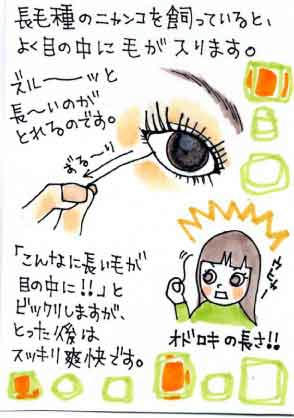 長毛種のニャンコを飼っていると、
よく目の中に毛が入ります。
ズルーーーッと
長〜いのが
とれるのです。
ずる〜り
「こんなに長い毛が
目の中に!!」と
ビックリしますが、
とった後は
スッキリ爽快です。
ウヒャー
オドロキの長さ!!